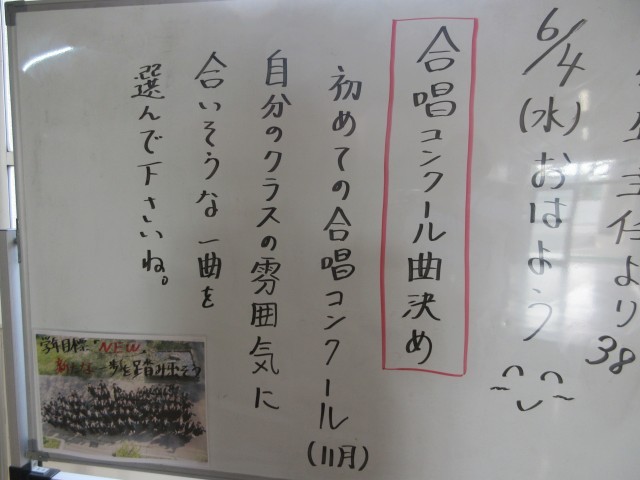 主任より 38
6/4(水)おはよう
合唱コンクール曲決め
初めての合唱コンクール(11月)
自分のクラスの雰囲気に
合いそうな一曲を
選んで下さいね。
学年目標 "NEW"
新たな一歩を踏みだそう